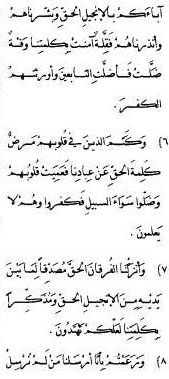 آباءكم بالإنجيل الحق وبشرناهم
وأنذرناهم فقلة آمنت بكلمتنا وفئة
ضلت فأضلت التابعين وأورثتهم
الكفر.
(٦) وكتم الذين في قلوبهم مرض
كلمة الحق عن عبادنا فعميت قلوبهم
وضلوا سواء السبيل فكفروا وهم لا
يعلمون.
(٧) وأنزلنا الفرقان الحق مصدقا لما بين
يديه من الإنجيل الحق ومذكرا
بكلمتنا لعلكم تهتدون.
(٨) وزعمتم بأنا أرسلنا من لم نرسل